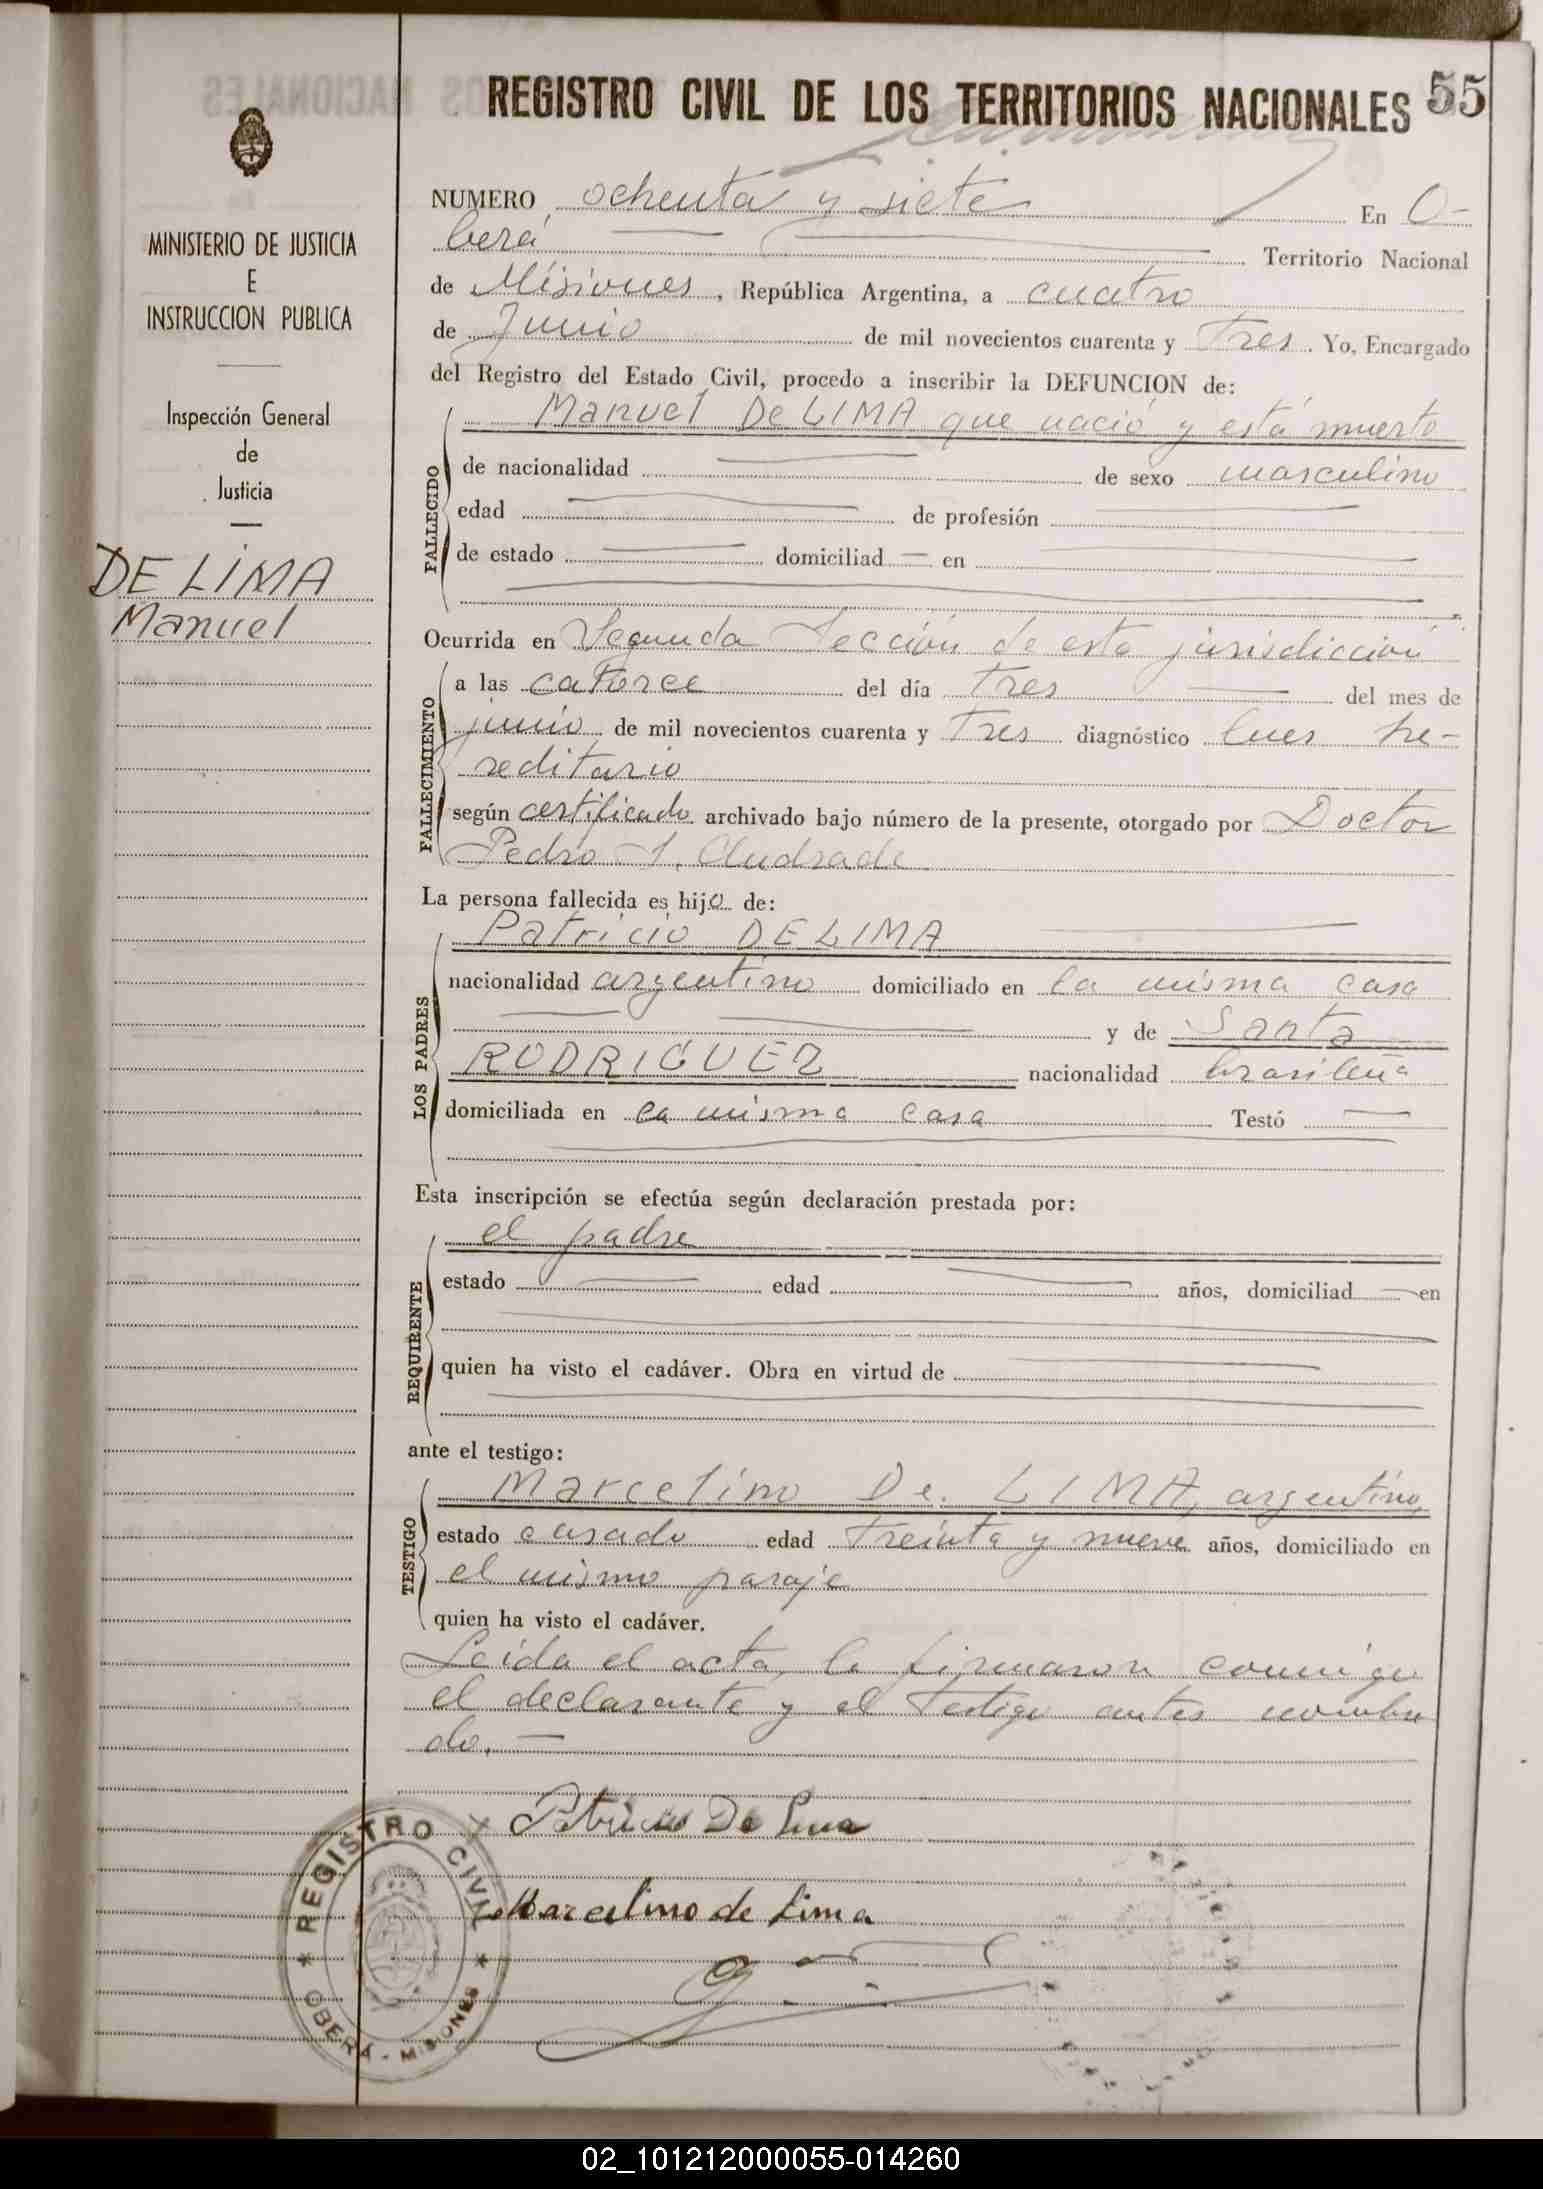 REGISTRO CIVIL DE LOS TERRITORIOS NACIONALES 55
MINISTERIO DE JUSTICIA
E
INSTRUCCION PUBLICA
Inspección General
de
Justicia
DE LIMA
Manuel
NUMERO ochenta y siete En O-
berá Territorio Nacional
de Misiones, República Argentina, a cuatro
de Junio de mil novecientos cuarenta y Tres. Yo, Encargado
del Registro del Estado Civil, procedo a inscribir la DEFUNCION de:
Manuel De LIMA que nació y está muerto
FALLECIDO
de nacionalidad de sexo masculino
edad de profesión
de estado domiciliad en
Ocurrida en Segunda Sección de esta jurisdicción
FALLECIMIENTO
a las catorce del día Tres del mes de
junio de mil novecientos cuarenta y Tres diagnóstico lues he-
reditario
según certificado archivado bajo número de la presente, otorgado por Doctor
Pedro Andrade
La persona fallecida es hijo de:
LOS PADRES
Patricio DE LIMA
nacionalidad argentino domiciliado en la misma casa
y de Santa
RODRIGUEZ nacionalidad brasileña
domiciliada en la misma casa Testó
Esta inscripción se efectúa según declaración prestada por:
REQUIRENTE
el padre
estado edad años, domiciliad en
quien ha visto el cadáver. Obra en virtud de
ante el testigo:
TESTIGO
Marcelino De LIMA, argentino,
estado casado edad treinta y nueve años, domiciliado en
el mismo paraje
quien ha visto el cadáver.
Leída el acta, la firmaron conmigo
el declarante y el Testigo antes nombra
do.
Patricio De Lima
Marcelino de Lima
REGISTRO CIVIL
OBERA - MISIONES
02_101212000055-014260